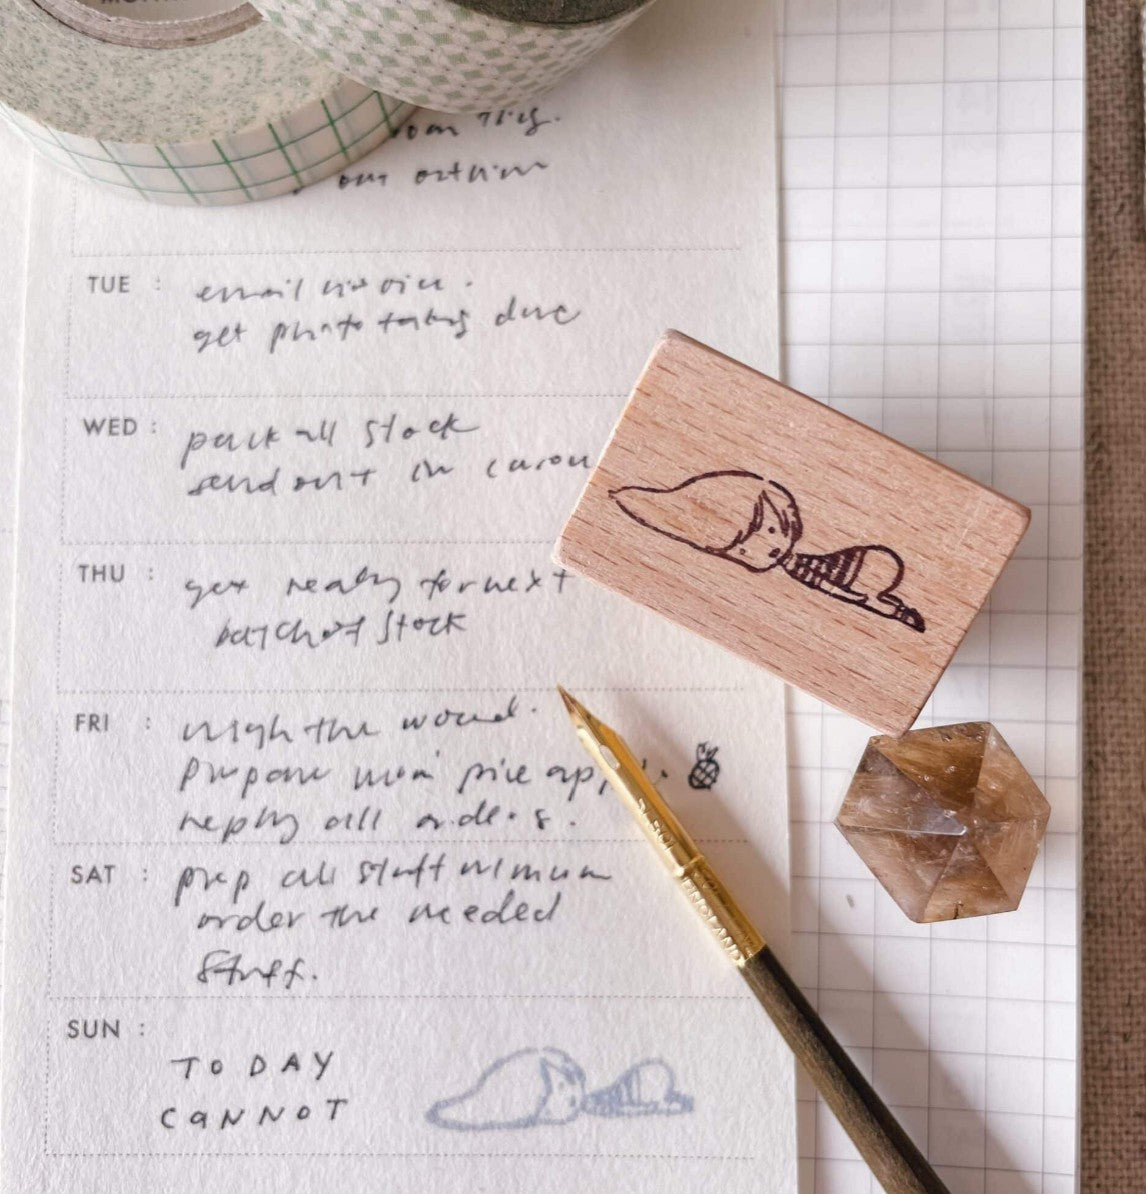 TUE :
email invoice.
get photo taking done
WED :
pack all stock
send out in
THU :
get ready for next
batch of stock
FRI :
weigh the
prepare mom
reply all orders.
SAT :
prep all stuff
order the needed
stuff.
SUN :
TODAY
CANNOT
ENGLAND